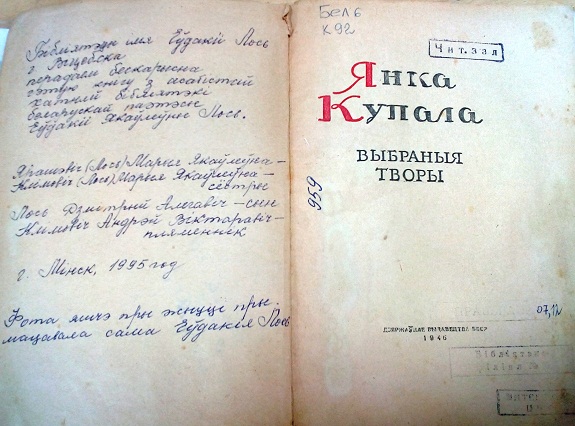 Бібліятэцы імя Еўдакіі Лось
г. Віцебска
перадаём бескарысна
гэтую кнігу з асабістай
хатняй бібліятэкі
беларускай паэтэсы
Еўдакіі Якаўлеўны Лось.
(Лось) Марыя Якаўлеўна –
Клімовіч (Лось) Марыя Якаўлеўна –
сёстры
Лось Дзмітрый Алегавіч – сын
Клімовіч Андрэй Віктаравіч –
пляменнік
г. Мінск, 1995 год
Фота яшчэ пры жыцці пры-
мацавала сама Еўдакія Лось
Бел 6
К 92
Чит. зал
Янка
Купала
ВЫБРАНЫЯ
ТВОРЫ
656
07,12
ДЗЯРЖАЎНАЕ ВЫДАВЕЦТВА БССР
1946
Бібліятэка